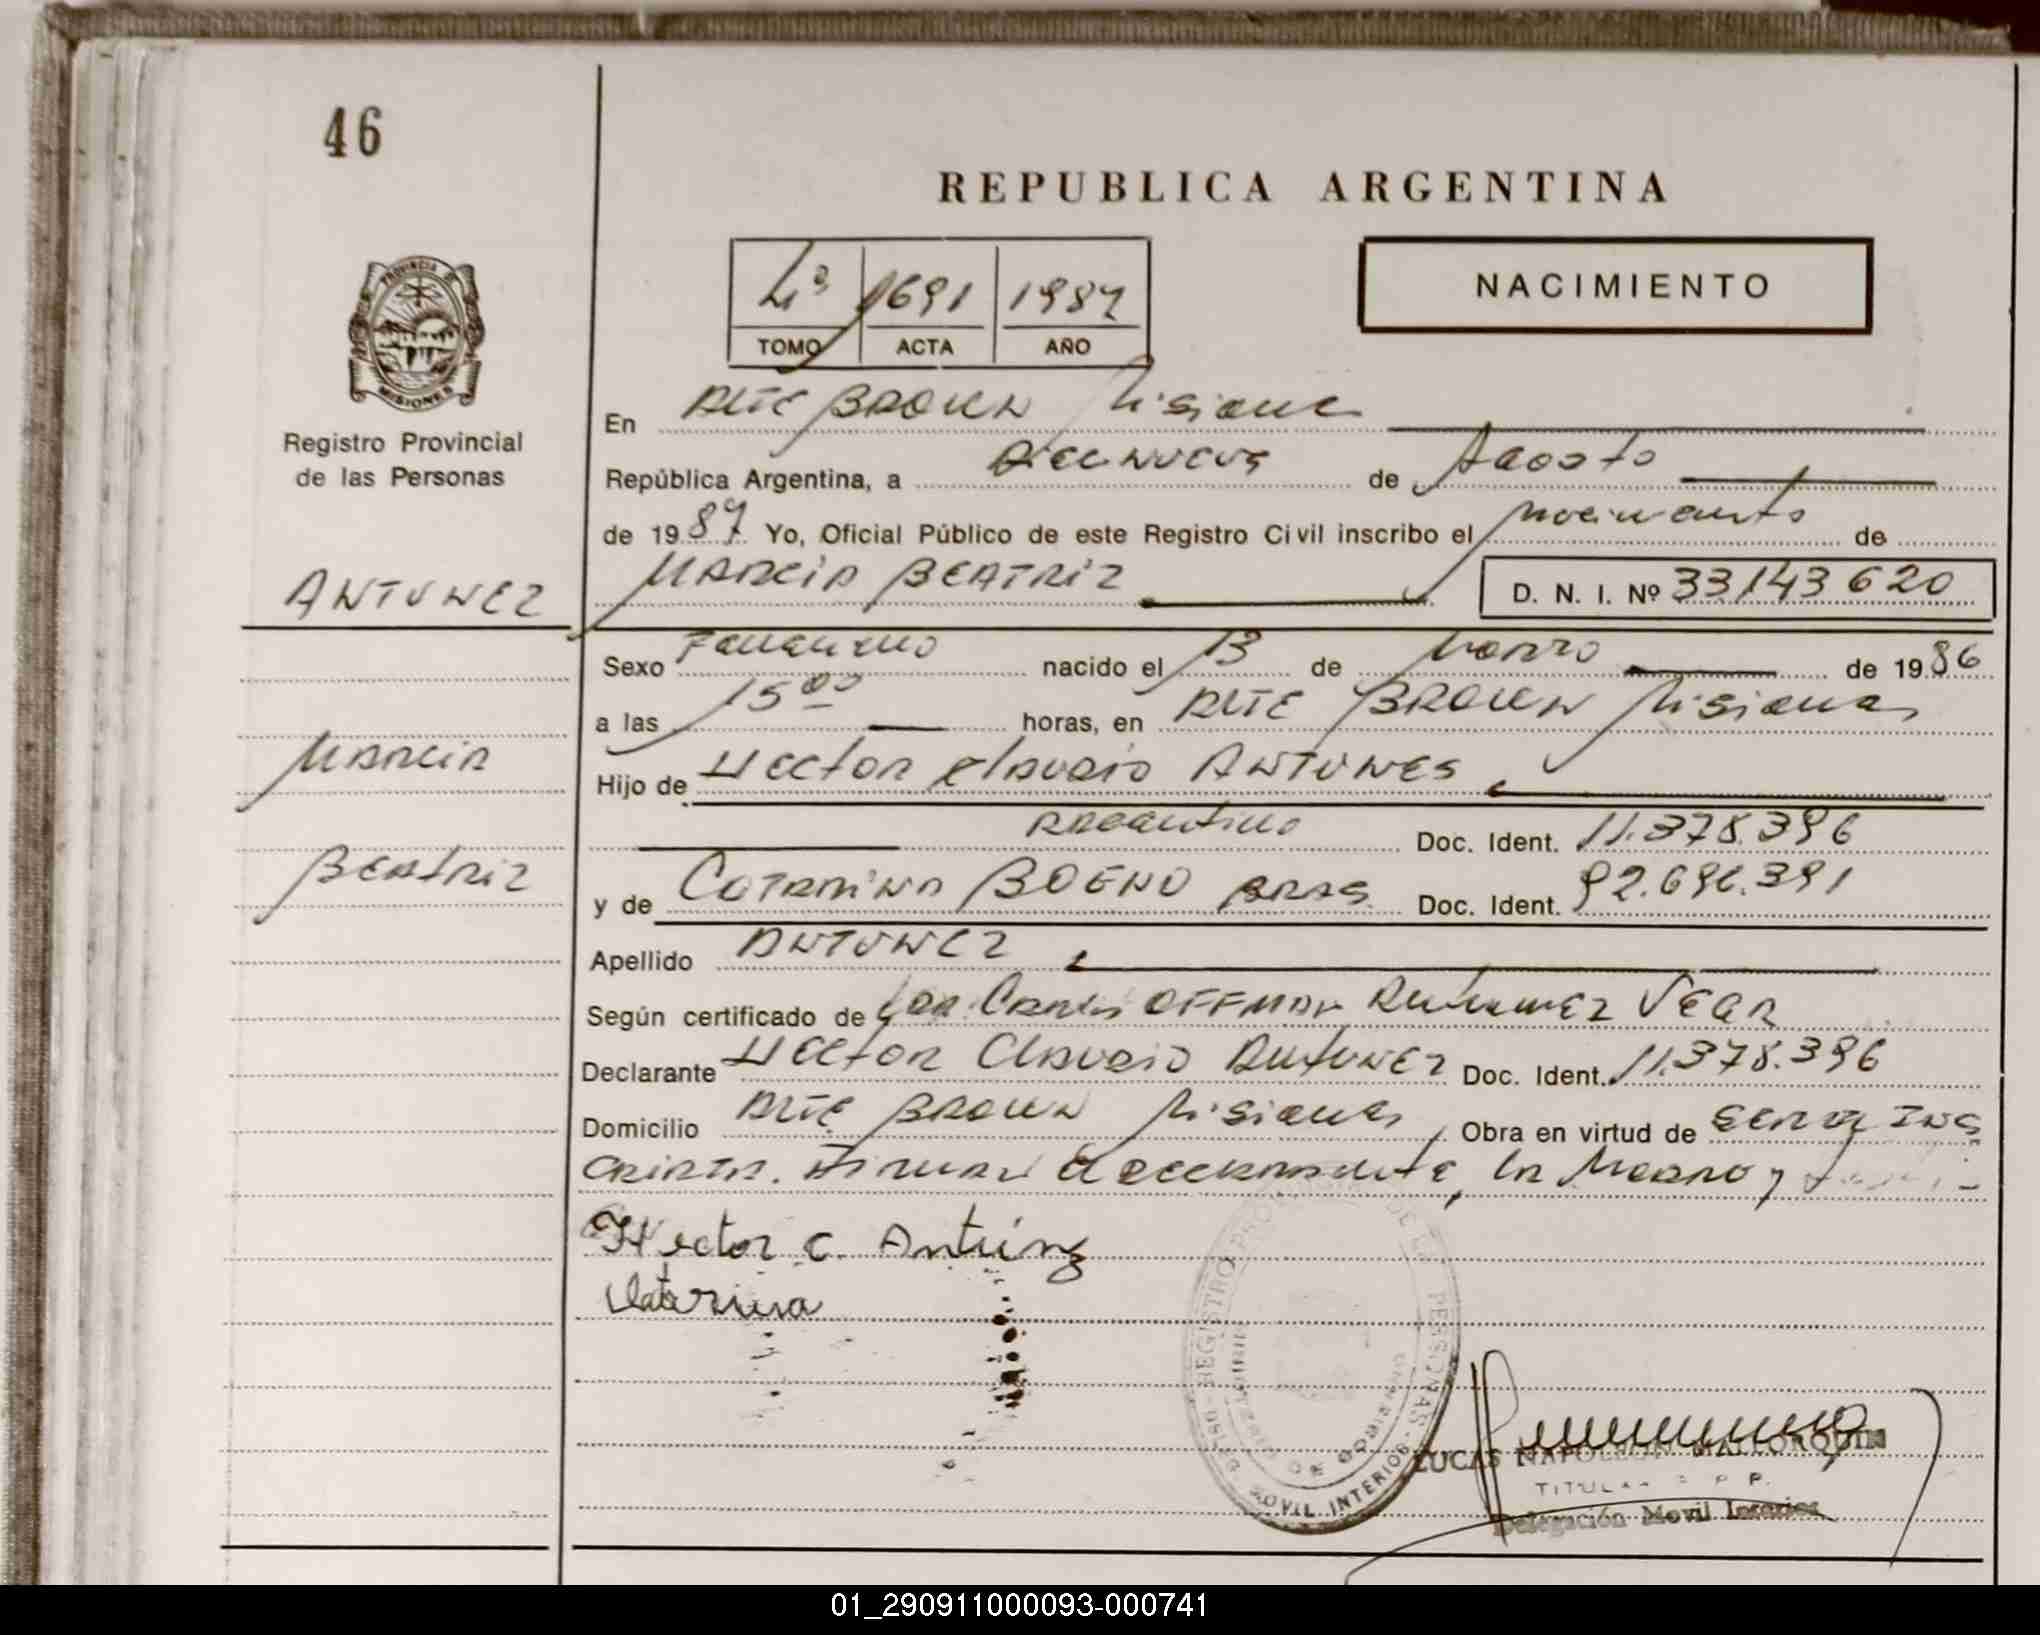 46
REPUBLICA ARGENTINA
PROVINCIA D
MISIONES
Registro Provincial
de las Personas
4º 1691 1987
TOMO ACTA AÑO
NACIMIENTO
En Alte Brown Misiones
República Argentina, a Diecinueve de Agosto
de 1987 Yo, Oficial Público de este Registro Civil inscribo el nacimiento de
ANTUNEZ
MARCIA BEATRIZ D. N. I. Nº 33143620
Sexo Femenino nacido el 13 de Marzo de 1986
a las 15⁰⁰ horas, en Alte Brown Misiones
Marcia
Hijo de Hector Claudio ANTUNES
Argentino Doc. Ident. 11.378.396
Beatriz
y de Catarina BOENO BRAS. Doc. Ident. 92.696.391
Apellido ANTUNEZ
Según certificado de Carlos OFFMAN
Declarante Hector Claudio Antunez Doc. Ident. 11.378.396
Domicilio Alte Brown Misiones Obra en virtud de
Firman el declarante, la Madre y
Hector C. Antúnz
Catarina
REGISTRO PROV DE LA PERSONAS
MINISTERIO DE GOBIERNO
MOVIL INTERIOR
LUCAS NAPOLEON MALLORQUIN
TITULAR P. P.
Delegación Movil Interior
01_290911000093-000741